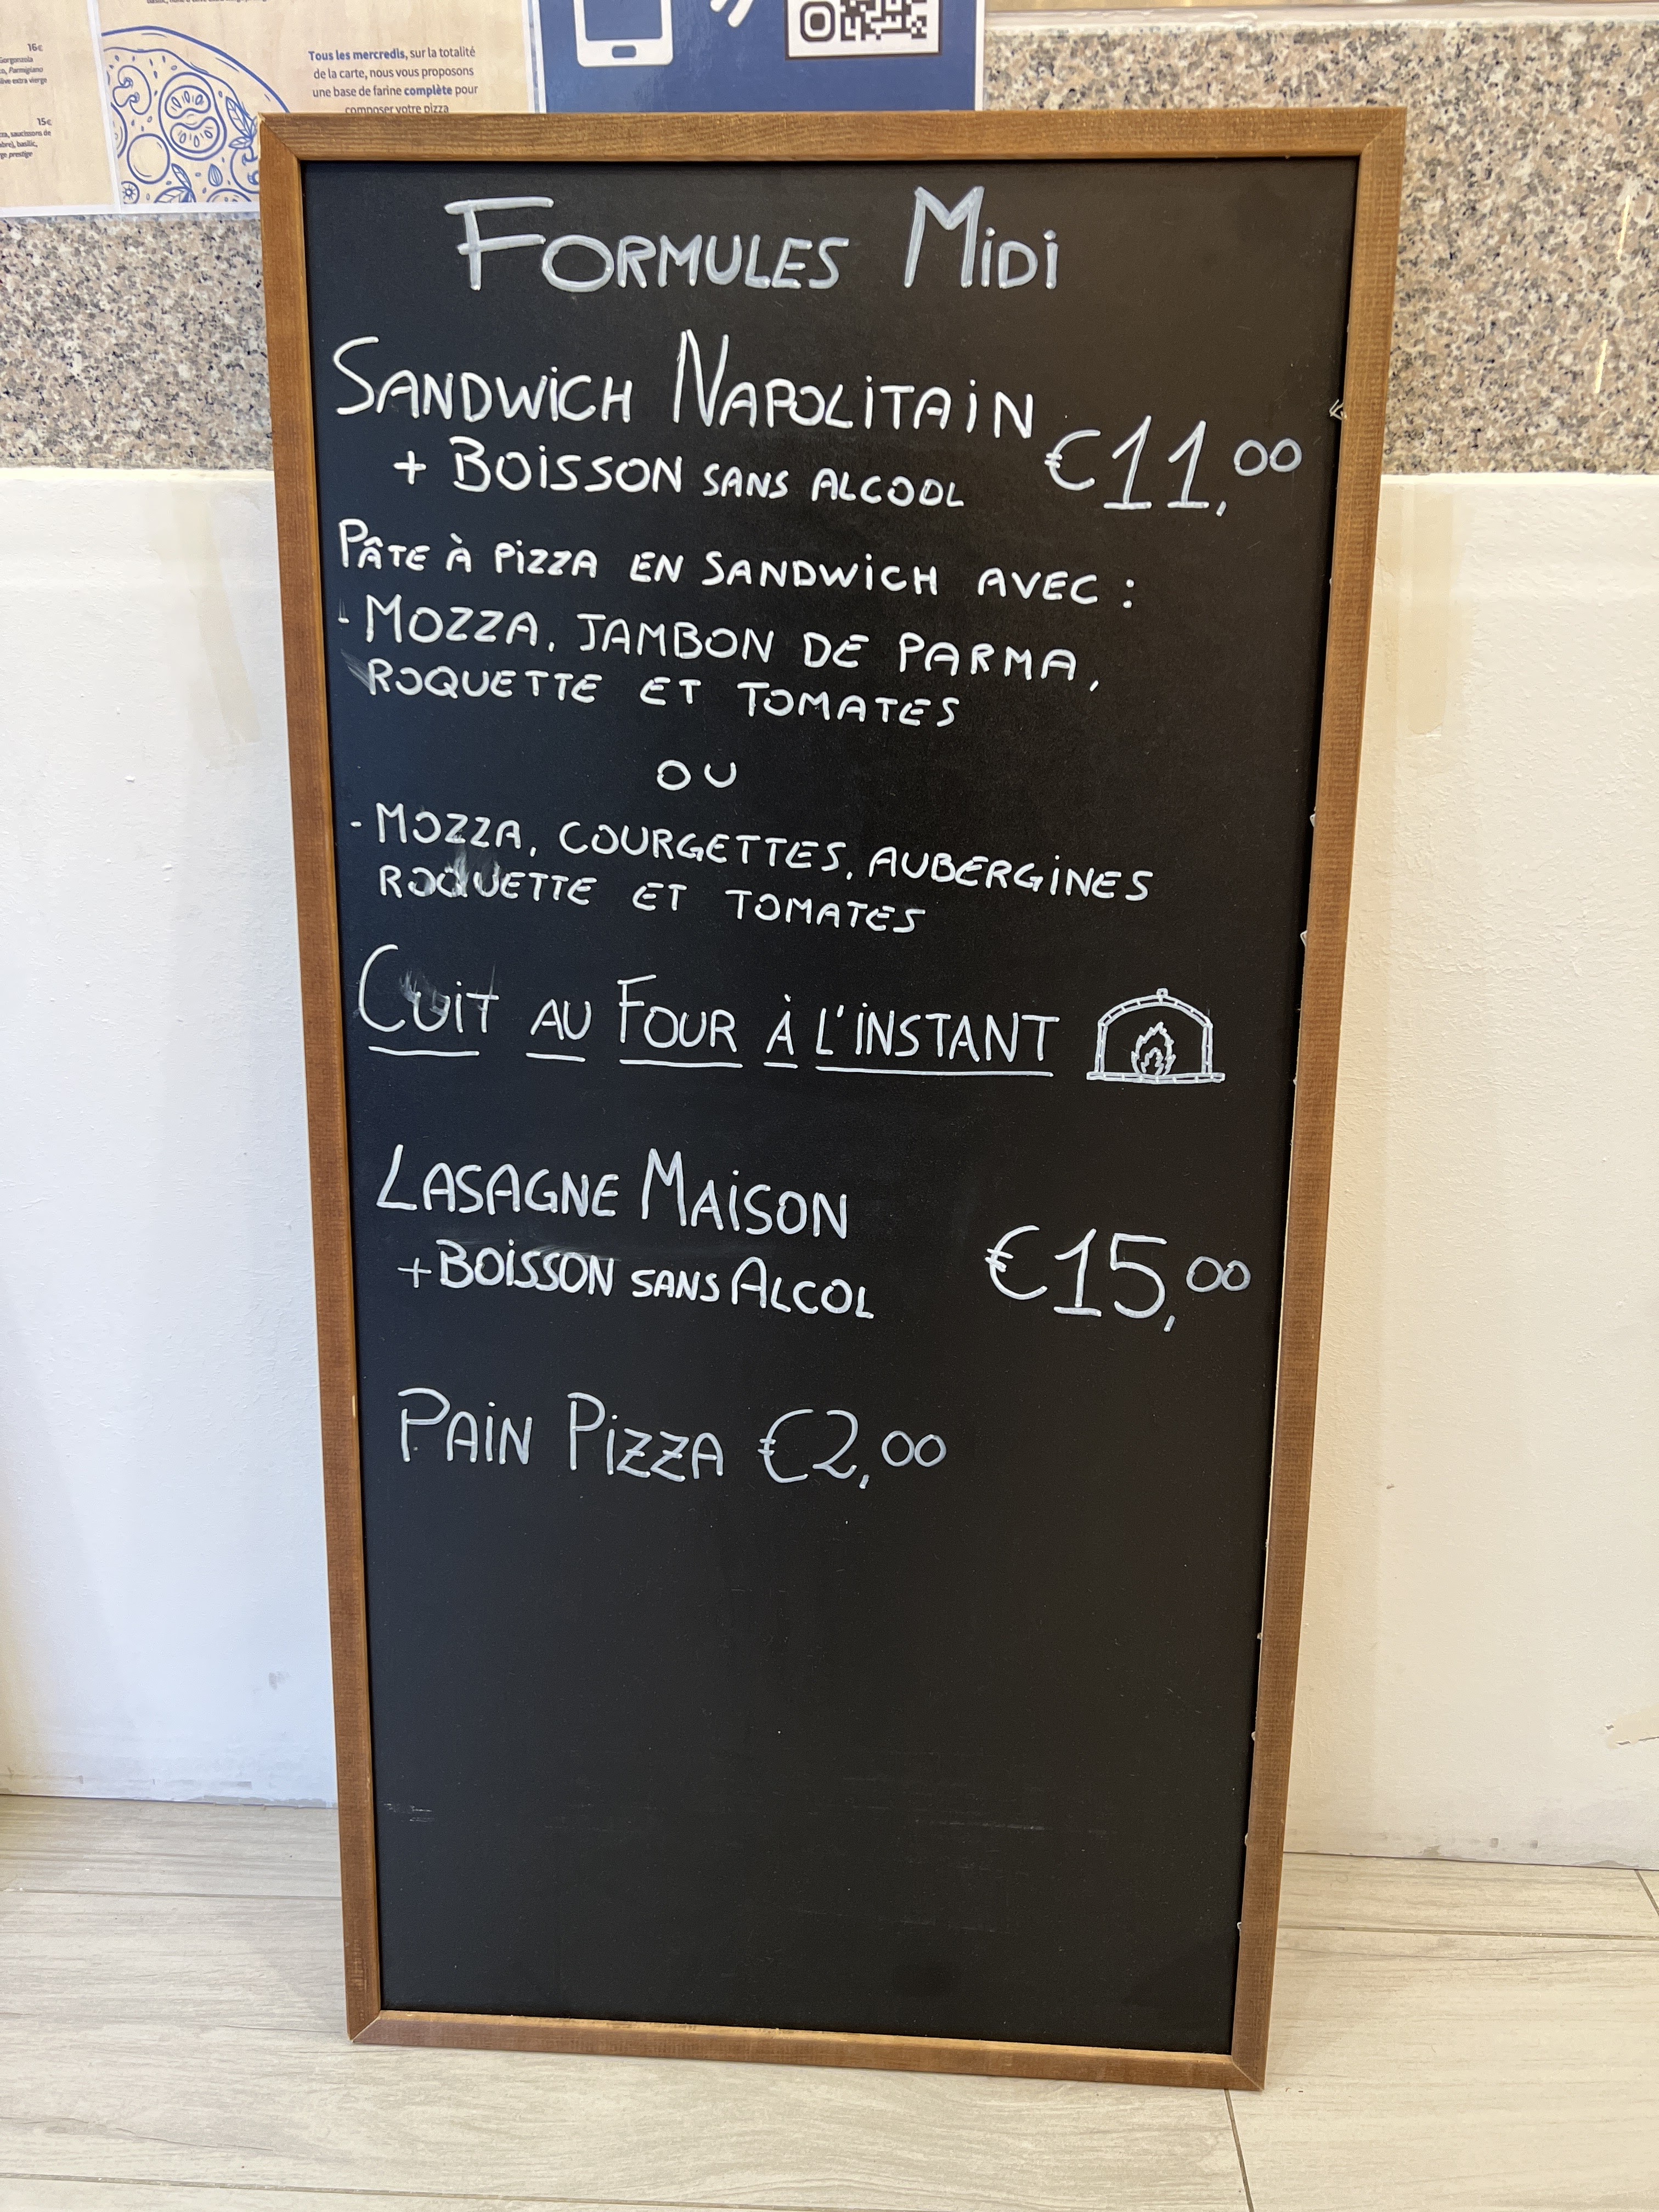 16€
Gorgonzola
Parmigiano
extra vierge
15€
saucissons de
basilic,
prestige
Tous les mercredis, sur la totalité
de la carte, nous vous proposons
une base de farine complète pour
composer votre pizza
FORMULES MiDi
SANDWiCH NAPOLiTAiN
+ BOiSSON SANS ALCOOL €11,00
PÂTE À PiZZA EN SANDWiCH AVEC :
- MOZZA, JAMBON DE PARMA,
ROQUETTE ET TOMATES
OU
- MOZZA, COURGETTES, AUBERGiNES
ROQUETTE ET TOMATES
CUiT AU FOUR À L'iNSTANT
LASAGNE MAiSON
+ BOiSSON SANS ALCOL €15,00
PAiN PiZZA €2,00